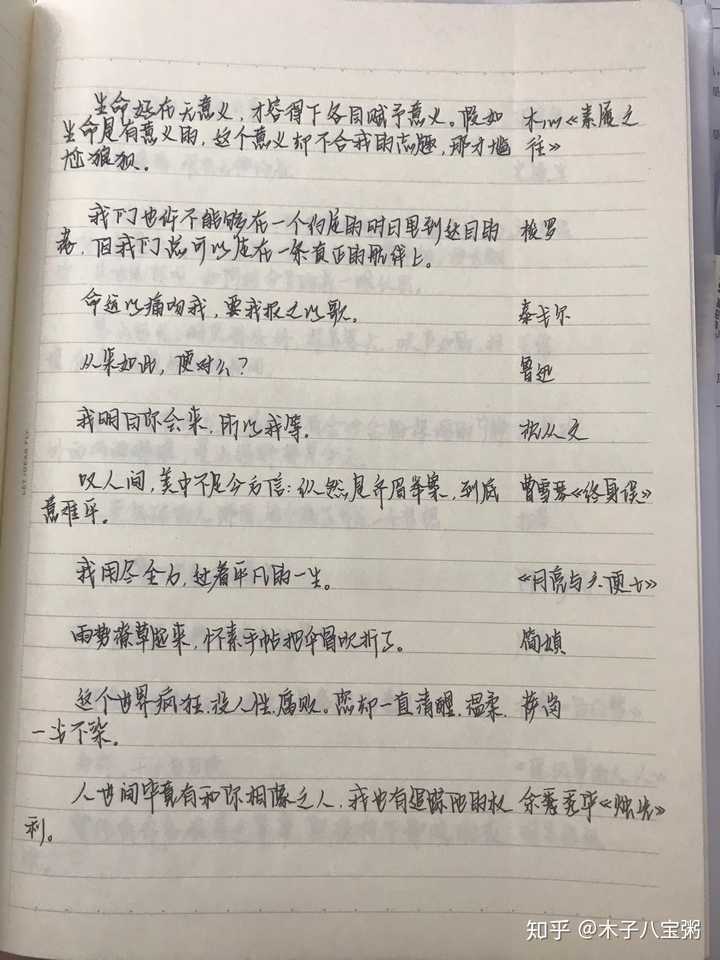 生命好在无意义，才容得下各自赋予意义。假如 木心《素履之
生命是有意义的，这个意义却不合我的志趣，那才尴 往》
尬狼狈。
我们也许不能够在一个约定的时日里到达目的 梭罗
港，但我们总可以走在一条真正的航线上。
命运以痛吻我，要我报之以歌。 泰戈尔
从来如此，便对么？ 鲁迅
我明白你会来，所以我等。 沈从文
叹人间，美中不足今方信：纵然是齐眉举案，到底 曹雪芹《终身误》
意难平。
我用尽全力，过着平凡的一生。 《月亮与六便士》
雨势潦草起来，怀素手帖把伞骨吹折了。 简媜
这个世界疯狂、没人性、腐败。您却一直清醒、温柔、 萨岗
一尘不染。
人世间毕竟有和你相像之人，我也有追踪他的权 余秀华《烛光》
利。
LET IDEAS FLY
知乎 @木子八宝粥